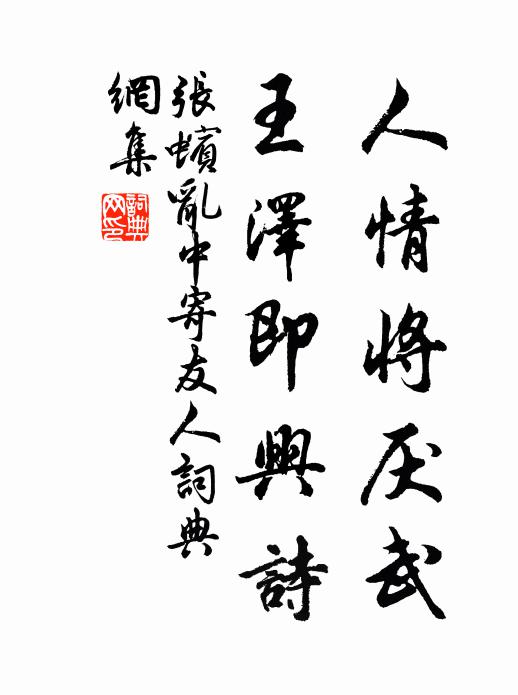 人情將厌武
王澤即興詩
張蠙亂中寄友人詞典
網集
詞典
网印